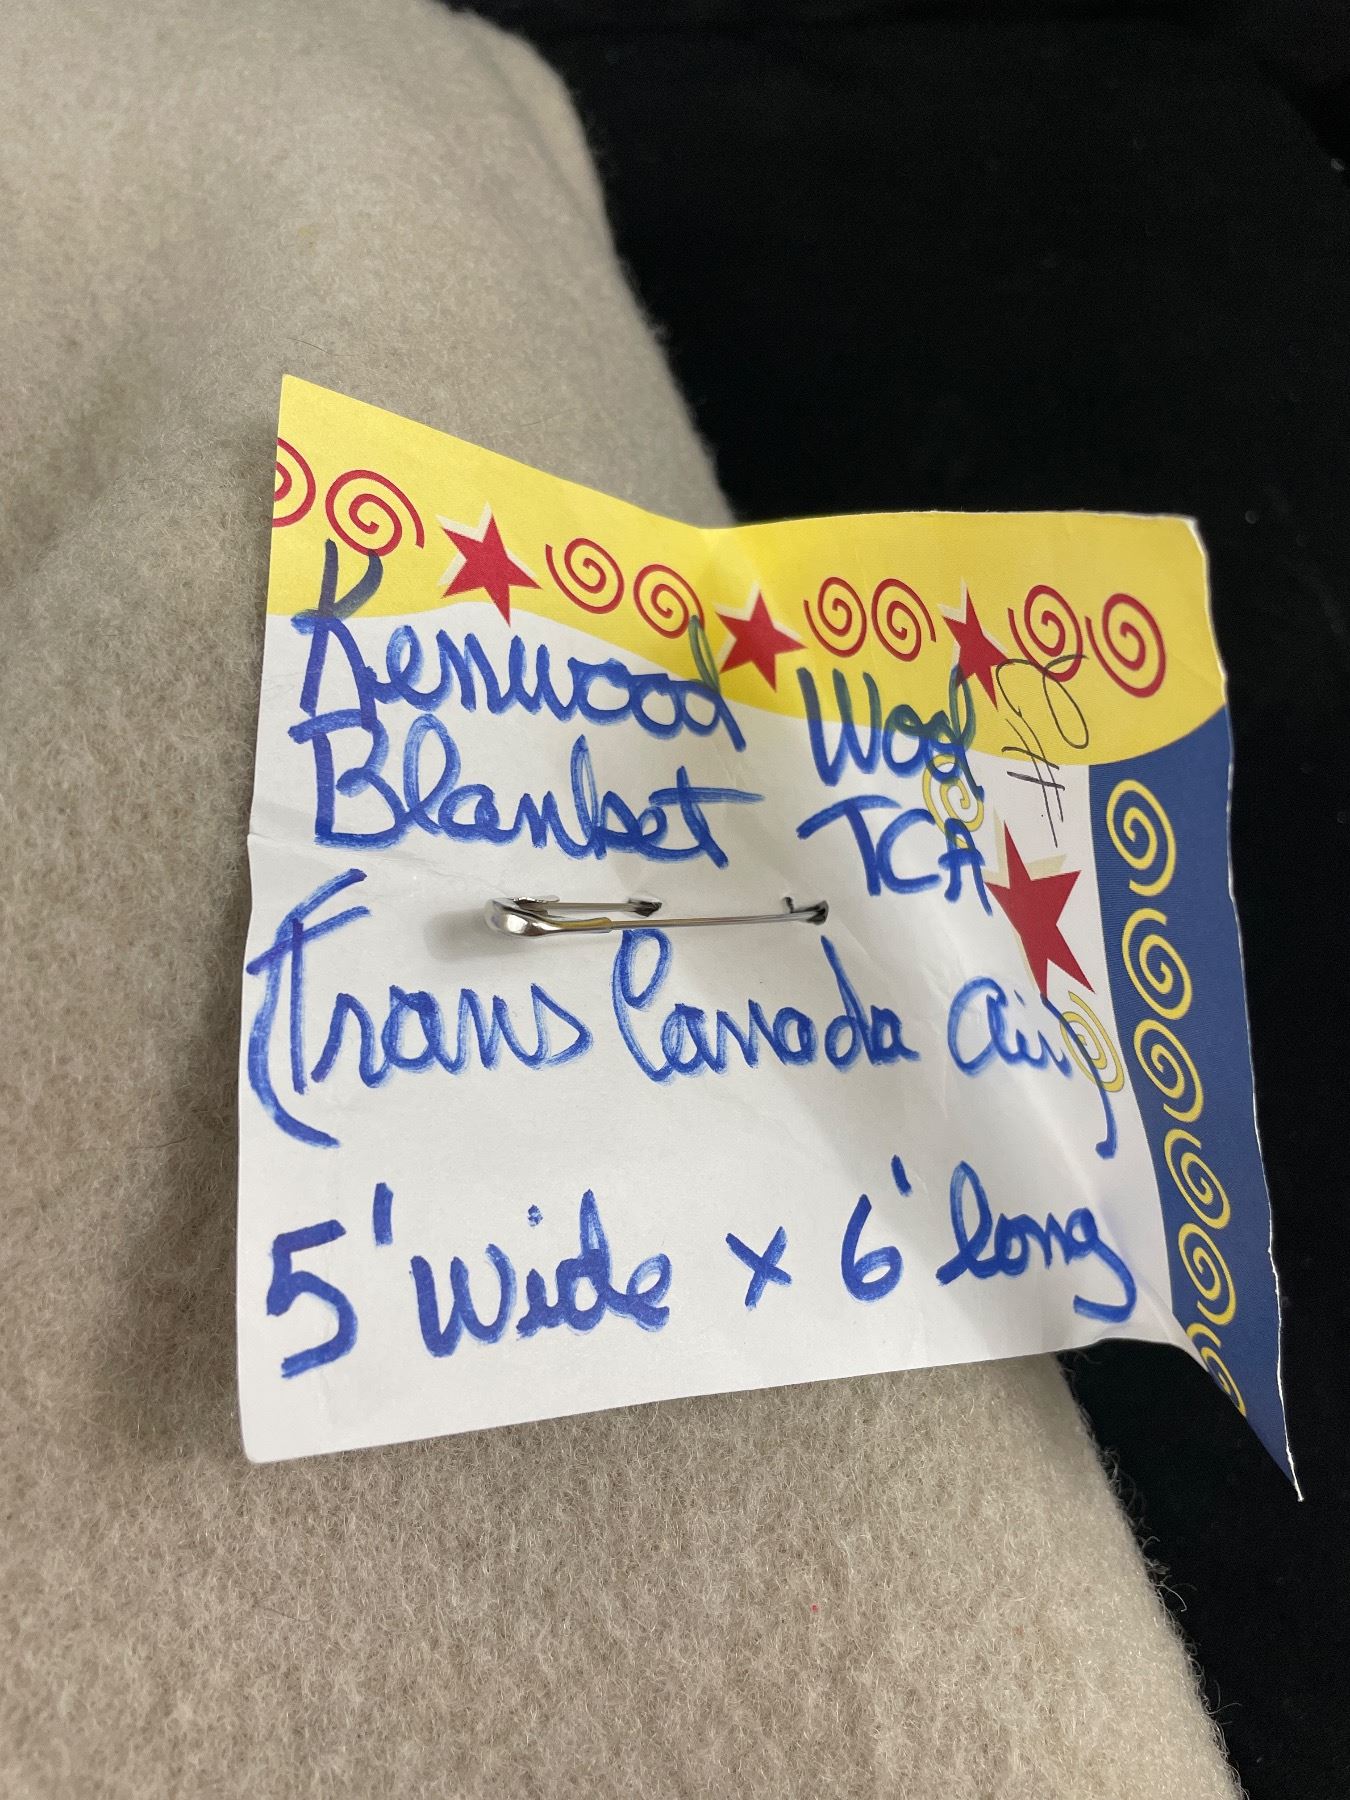 Kenwood Wool
Blanket TCA
(Trans Canada Air)
5' Wide x 6' long